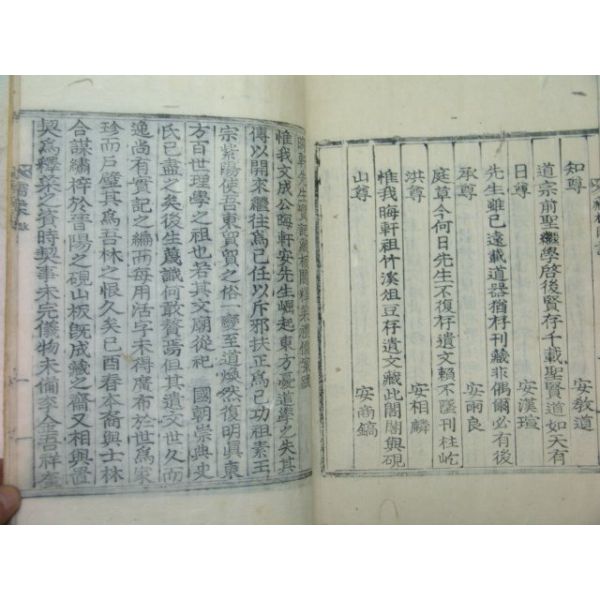 知尊　安敎道
道宗前聖繼學啓後賢存千載聖賢道如天有
日尊　安漢瑄
先生雖已遠載道器猶存刊藏非偶爾必有後
承尊　安雨良
庭草今何日先生不復存遺文賴不墜刊柱屹
洪尊　安相麟
惟我晦軒祖竹溪俎豆存遺文藏此閣閣與硯
山尊　安商鎬
惟我文成公晦軒安先生崛起東方憂道學之失其
傳以開來繼往爲己任以斥邪扶正爲己功祖素王
宗紫陽使吾東貿貿之俗一變至道煥然復明眞東
方百世理學之祖也若其文廟從祀　國朝崇典史
氏已盡之矣後生蔑識何敢贅焉但其遺文世久而
逸尚有實記之編而每用活字未得廣布於世爲家
珍而戶璧其爲吾林之恨久矣已酉春本裔與士林
合謀繡梓於晋陽之硯山板旣成藏之齋又相與置
契爲釋菜之資時契事未完儀物未備